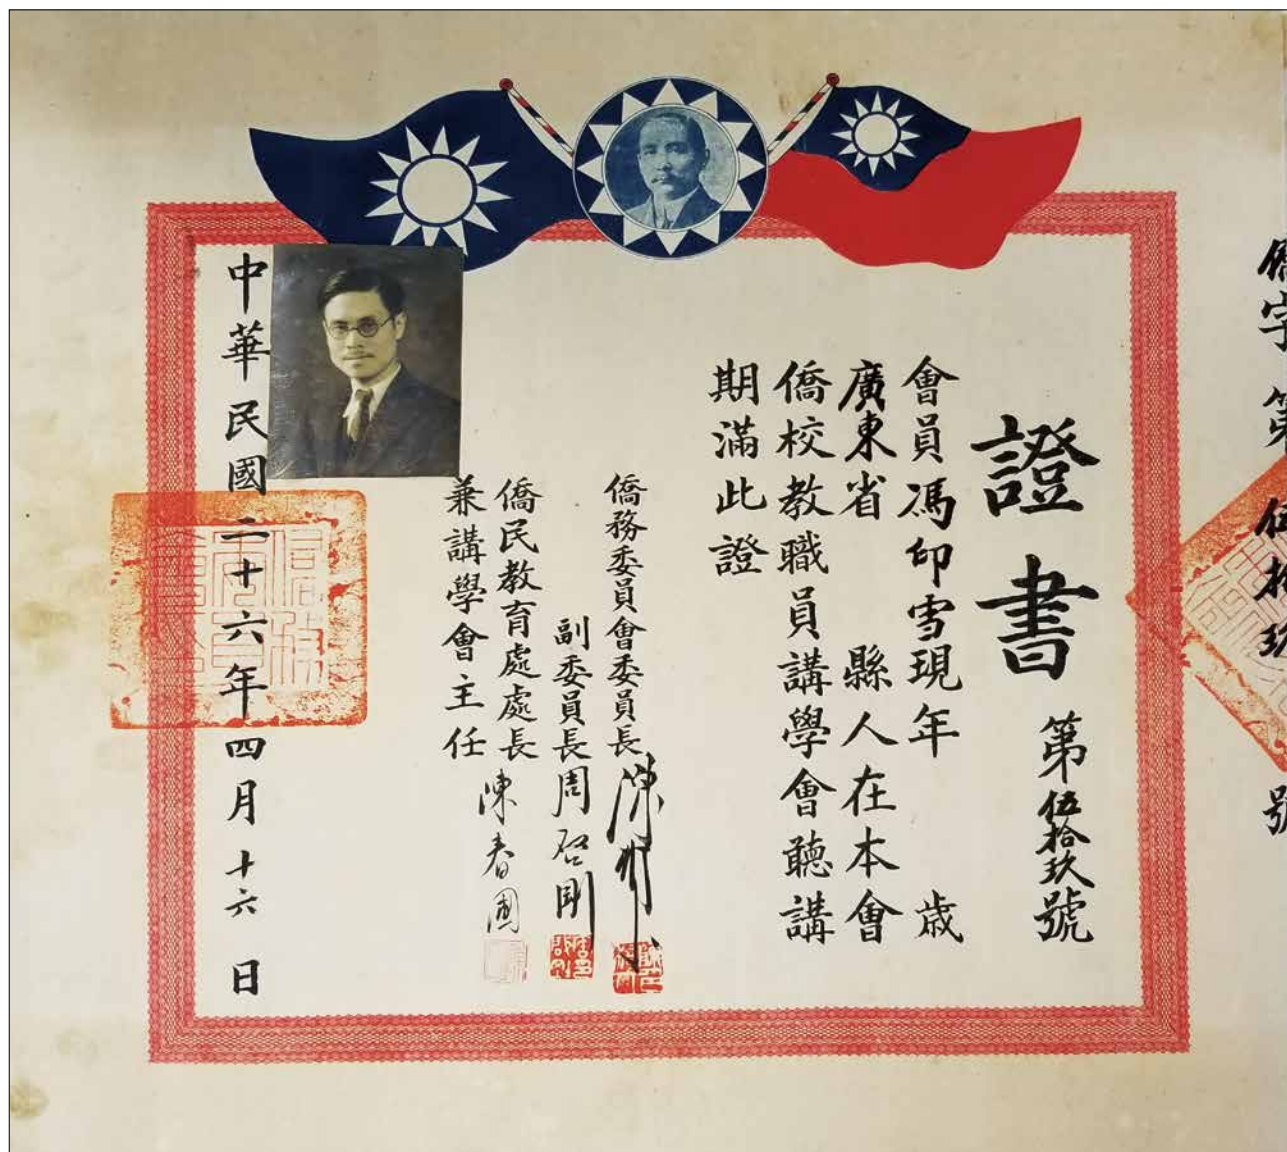 字第伍拾玖號
證書
第伍拾玖號
會員馮印雪現年 歲
廣東省 縣人在本會
僑校教職員講學會聽講
期滿此證
僑務委員會委員長陳樹人
副委員長周啓剛
僑民教育處處長
兼講學會主任
陳春圃
中華民國二十六年四月十六日